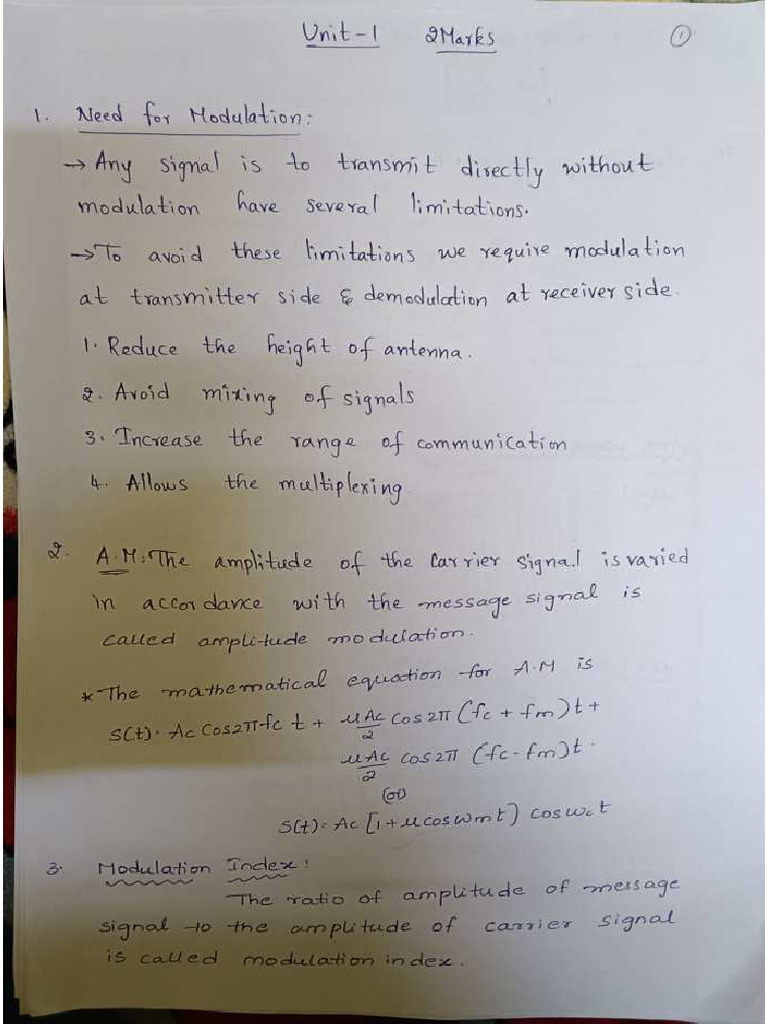 Unit-1 2Marks 1
1. Need for Modulation:
→ Any signal is to transmit directly without
modulation have several limitations.
→ To avoid these limitations we require modulation
at transmitter side & demodulation at receiver side.
1. Reduce the height of antenna.
2. Avoid mixing of signals
3. Increase the range of communication
4. Allows the multiplexing
2. A.M: The amplitude of the Carrier signal is varied
in accordance with the message signal is
called amplitude modulation.
* The mathematical equation for A.M is
S(t) = Ac Cos2πfc t + μAc/2 Cos 2π (fc + fm)t +
μAc/2 cos 2π (fc - fm)t.
(or)
S(t) = Ac [1 + μ cos wm t) cos wc t
3. Modulation Index:
The ratio of amplitude of message
signal to the amplitude of carrier signal
is called modulation index.